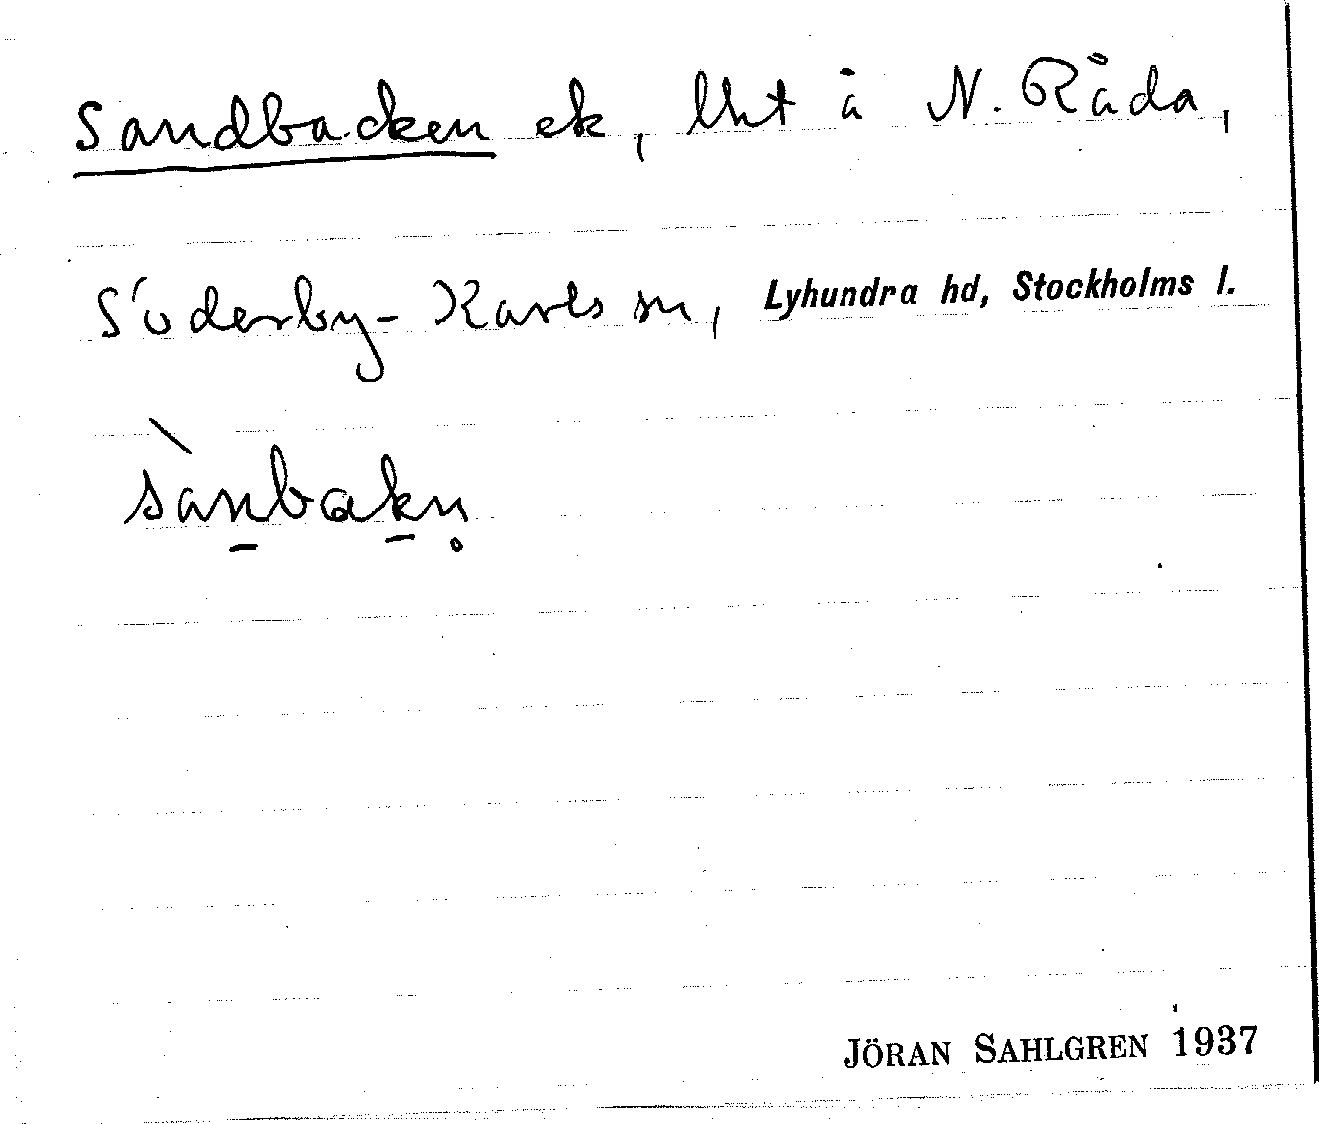 Sandbacken ek, lht å N. Råda,
Söderby-Karls sn, Lyhundra hd, Stockholms l.
sànbakn̥
JÖRAN SAHLGREN 1937